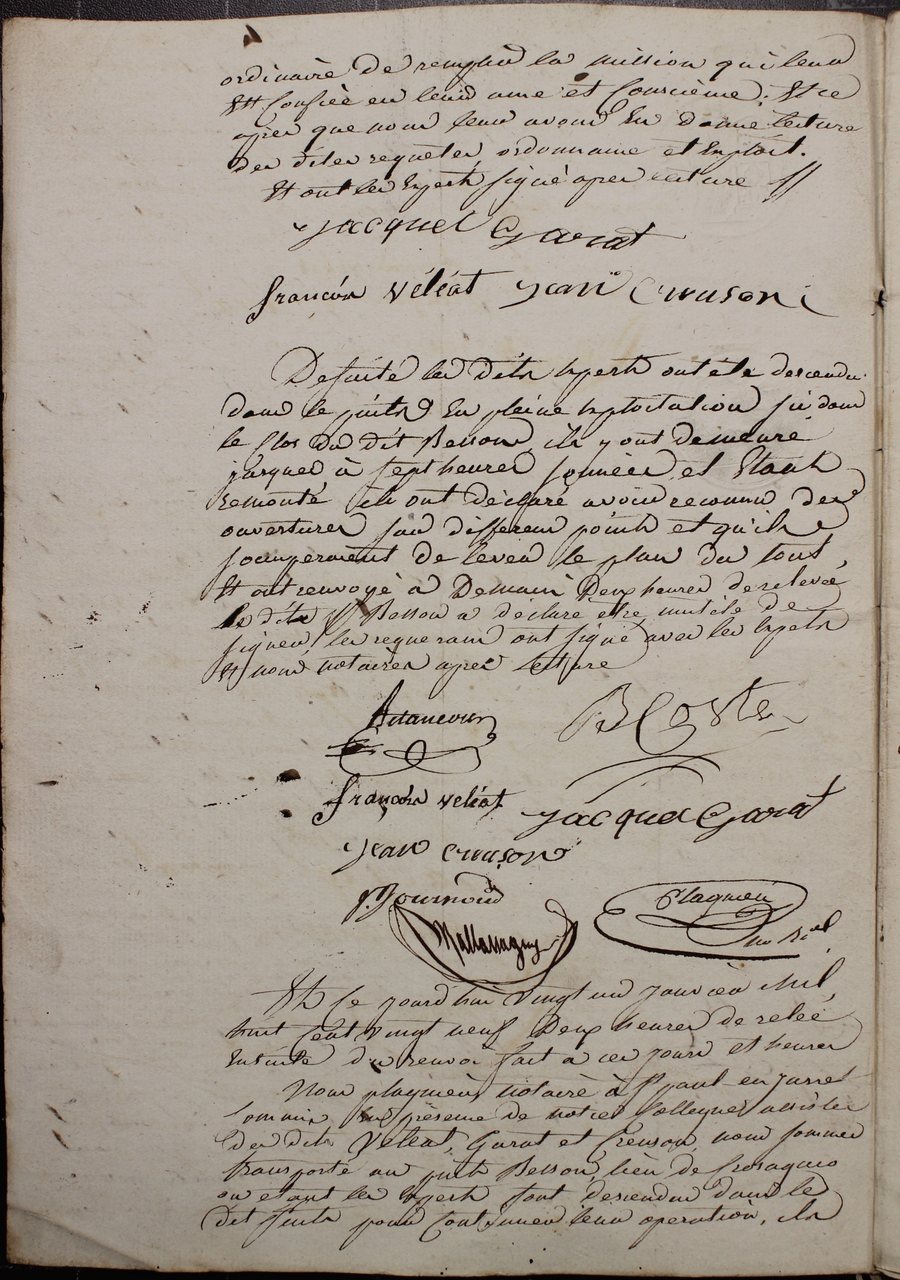 ordinaire de remplir la mission qui leur
Est Confiée en leurs ame et Conscience, Et ce
apres que nous leur avons Eu donné lecture
des dites requetes, ordonnance et Exploit.
Et ont les Experts signé apres lecture //
Jacques Garat
françois véléat Jean Cruson
De suite les dits Experts ont été descendu
dans le puits En pleine Exploitation sis dans
le Clos du dit Besson, ils y ont demeuré
jusques à sept heures sonnées, et Etant
Remonté ils ont déclaré avoir reconnu des
ouvertures sur differens points et qu'ils
s'ocuperaient de lever le plan du tout,
Et ont renvoyé à Demain Deux heures de relevée
le dit Sr Besson a déclaré etre inutile de
signer, les requerans ont signé avec les Experts
Et nous notaires apres lecture
BCoste
françois veléat Jacques Garat
Jean Cruson
Journoud
Plagnieu
no Ral
Et Ce jourd'hui vingt un janvier Mil
huit Cent vingt neuf Deux heures de relée
Ensuite du renvoi fait à ces jours et heures
Nous plagnieu notaire à St paul en jarret
Commis, En présence de notre Collegue, assisté
des dits Véléat, Garat et Creuson, nous sommes
transporté au puits Besson, lieu de
ou etant les Experts sont descendus dans le
Dit puits pour Continuer leur operation, ils